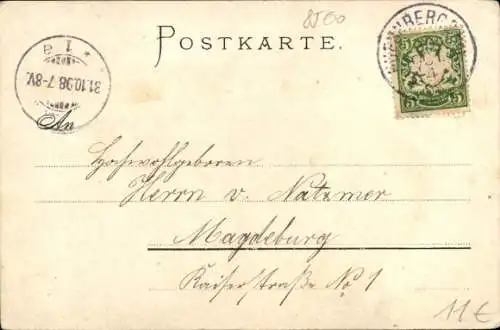 8500
POSTKARTE.
* 1 a *
31.10.98.7-8V.
5 5
An
Hochwohlgeboren
Herrn v. Natzmer
Magdeburg
Kaiserstraße No. 1
11€